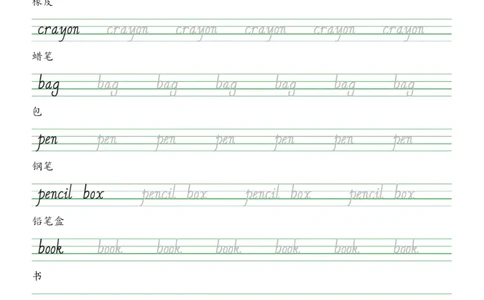 橡皮
crayon crayon crayon crayon crayon crayon
蜡笔
bag bag bag bag bag bag bag
包
pen pen pen pen pen pen pen
钢笔
pencil box pencil box pencil box pencil box
铅笔盒
book book book book book book book
书